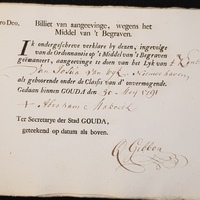 ro Deo,
Billiet van aangeevinge, wegens het
Middel van 't Begraven.
IK ondergeschreve verklare by dezen, ingevolge
van de Ordonnantie op 't Middel van 't Begraven
geëmaneert, aangeevinge te doen van het Lyk van
van Dyk
als gehoorende onder de Classis van d' onvermogende.
Gedaan binnen GOUDA den 30 Mey 1791
Abraham
Ter Secretarye der Stad GOUDA,
geteekend op datum als boven.